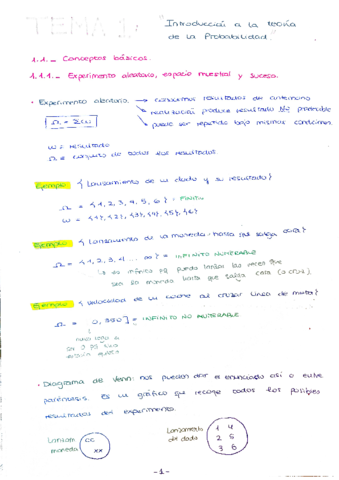 TEMA 1: Introducción a la teoría
de la Probabilidad.
1.1.- Conceptos básicos.
1.1.1.- Experimento aleatorio, espacio muestral y suceso.
· Experimento aleatorio. → conocemos resultados de antemano
→ realización produce resultado no predecible
Ω = {ω} → puede ser repetido bajo mismas condiciones.
ω = resultado
Ω = conjunto de todos los resultados.
Ejemplo: {lanzamiento de un dado y su resultado}
Ω = {1, 2, 3, 4, 5, 6} : FINITO
ω = {1}, {2}, {3}, {4}, {5}, {6}
Ejemplo: {lanzamiento de la moneda hasta que salga cara}
Ω = {1, 2, 3, 4 ... ∞} = INFINITO NUMERABLE
es infinito pq puedo lanzar las veces que
sea la moneda hasta que salga cara (o cruz).
Ejemplo: {velocidad de un coche al cruzar línea de meta}
Ω = 0, 330] = INFINITO NO NUMERABLE
· Diagrama de Venn: nos pueden dar el enunciado así o entre
paréntesis. Es un gráfico que recoge todos los posibles
resultados del experimento.
Lanzam. moneda
cc
xx
Lanzamiento de dado
1 4
2 5
3 6
-1-